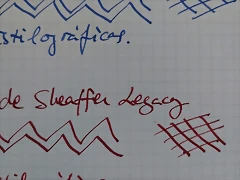 stilográficas.
de Sheaffer Legacy